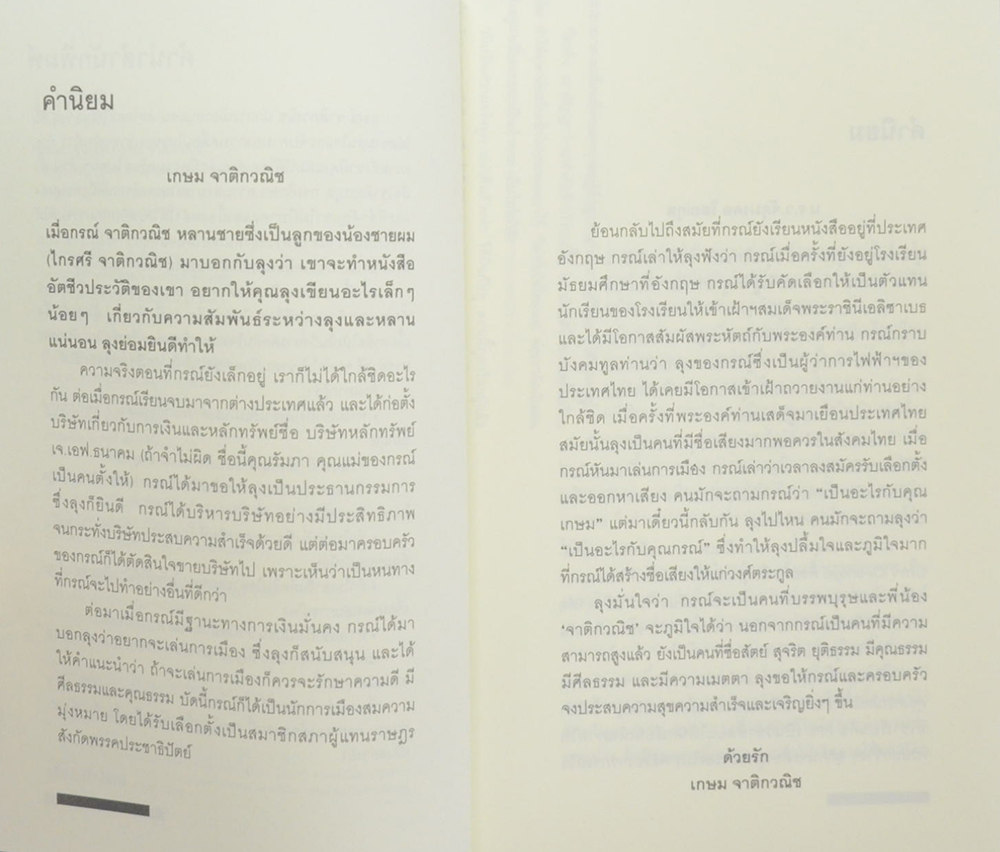 คำนิยม
เกษม จาติกวณิช
เมื่อกรณ์ จาติกวณิช หลานชายซึ่งเป็นลูกของน้องชายผม
(ไกรศรี จาติกวณิช) มาบอกกับลุงว่า เขาจะทำหนังสือ
อัตชีวประวัติของเขา อยากให้คุณลุงเขียนอะไรเล็กๆ
น้อยๆ เกี่ยวกับความสัมพันธ์ระหว่างลุงและหลาน
แน่นอน ลุงย่อมยินดีทำให้
ความจริงตอนที่กรณ์ยังเล็กอยู่ เราก็ไม่ได้ใกล้ชิดอะไร
กัน ต่อเมื่อกรณ์เรียนจบมาจากต่างประเทศแล้ว และได้ก่อตั้ง
บริษัทเกี่ยวกับการเงินและหลักทรัพย์ชื่อ บริษัทหลักทรัพย์
เจ.เอฟ.ธนาคม (ถ้าจำไม่ผิด ชื่อนี้คุณรัมภา คุณแม่ของกรณ์
เป็นคนตั้งให้) กรณ์ได้มาขอให้ลุงเป็นประธานกรรมการ
ซึ่งลุงก็ยินดี กรณ์ได้บริหารบริษัทอย่างมีประสิทธิภาพ
จนกระทั่งบริษัทประสบความสำเร็จด้วยดี แต่ต่อมาครอบครัว
ของกรณ์ก็ได้ตัดสินใจขายบริษัทไป เพราะเห็นว่าเป็นหนทาง
ที่กรณ์จะไปทำอย่างอื่นที่ดีกว่า
ต่อมาเมื่อกรณ์มีฐานะทางการเงินมั่นคง กรณ์ได้มา
บอกลุงว่าอยากจะเล่นการเมือง ซึ่งลุงก็สนับสนุน และได้
ให้คำแนะนำว่า ถ้าจะเล่นการเมืองก็ควรจะรักษาความดี มี
ศีลธรรมและคุณธรรม บัดนี้กรณ์ก็ได้เป็นนักการเมืองสมความ
มุ่งหมาย โดยได้รับเลือกตั้งเป็นสมาชิกสภาผู้แทนราษฎร
สังกัดพรรคประชาธิปัตย์
ย้อนกลับไปถึงสมัยที่กรณ์ยังเรียนหนังสืออยู่ที่ประเทศ
อังกฤษ กรณ์เล่าให้ลุงฟังว่า กรณ์เมื่อครั้งที่ยังอยู่โรงเรียน
มัธยมศึกษาที่อังกฤษ กรณ์ได้รับคัดเลือกให้เป็นตัวแทน
นักเรียนของโรงเรียนให้เข้าเฝ้าฯสมเด็จพระราชินีเอลิซาเบธ
และได้มีโอกาสสัมผัสพระหัตถ์กับพระองค์ท่าน กรณ์กราบ
บังคมทูลท่านว่า ลุงของกรณ์ซึ่งเป็นผู้ว่าการไฟฟ้าฯของ
ประเทศไทย ได้เคยมีโอกาสเข้าเฝ้าถวายงานแก่ท่านอย่าง
ใกล้ชิด เมื่อครั้งที่พระองค์ท่านเสด็จมาเยือนประเทศไทย
สมัยนั้นลุงเป็นคนที่มีชื่อเสียงมากพอควรในสังคมไทย เมื่อ
กรณ์หันมาเล่นการเมือง กรณ์เล่าว่าเวลาลงสมัครรับเลือกตั้ง
และออกหาเสียง คนมักจะถามกรณ์ว่า “เป็นอะไรกับคุณ
เกษม” แต่มาเดี๋ยวนี้กลับกัน ลุงไปไหน คนมักจะถามลุงว่า
“เป็นอะไรกับคุณกรณ์” ซึ่งทำให้ลุงปลื้มใจและภูมิใจมาก
ที่กรณ์ได้สร้างชื่อเสียงให้แก่วงศ์ตระกูล
ลุงมั่นใจว่า กรณ์จะเป็นคนที่บรรพบุรุษและพี่น้อง
‘จาติกวณิช’ จะภูมิใจได้ว่า นอกจากกรณ์เป็นคนที่มีความ
สามารถสูงแล้ว ยังเป็นคนที่ซื่อสัตย์ สุจริต ยุติธรรม มีคุณธรรม
มีศีลธรรม และมีความเมตตา ลุงขอให้กรณ์และครอบครัว
จงประสบความสุขความสำเร็จและเจริญยิ่งๆ ขึ้น
ด้วยรัก
เกษม จาติกวณิช